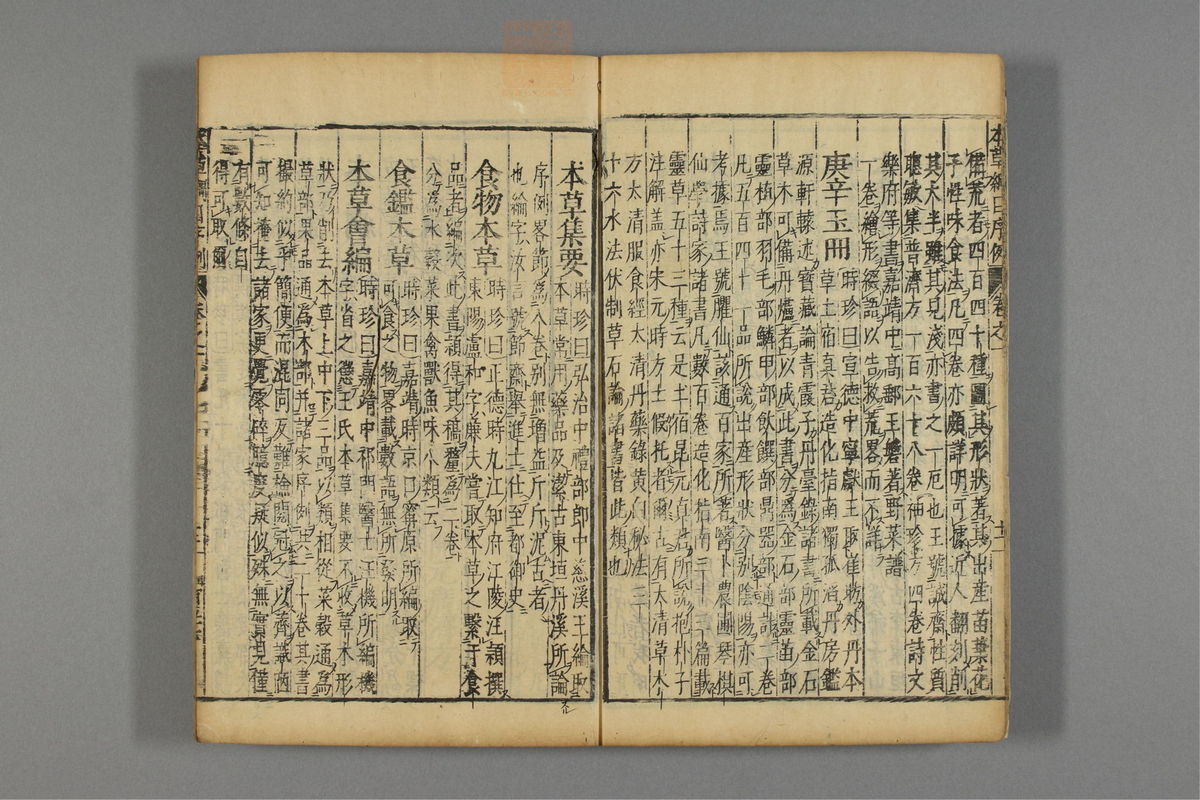 備荒者四百四十種圖其形狀著其出産苗葉花
子性味食法凡四卷亦頗詳明可據近人翻刻削
其大半雖其見淺亦書之一厄也王號誠齋性質
聰敏集普濟方一百六十八卷袖珍方四卷詩文
樂府等書嘉靖中高郵王磐著野菜譜
一卷繪形綴語以告救荒畧而不詳
庚辛玉冊 時珍曰宣德中寧獻王取崔昉外丹本
草土宿真君造化指南獨孤滔丹房鑑
源軒轅述寶藏論青霞子丹臺錄諸書所載金石
草木可備丹爐者以成此書分爲金石部靈苗部
靈植部羽毛部鱗甲部飲饌部鼎器部通計二卷
凡五百四十一品所說出産形狀分別陰陽亦可
考據焉王號臞仙該通百家所著醫卜農圃琴棋
仙學詩家諸書凡數百卷造化指南三十三篇載
靈草五十三種云是土宿昆元真君所說抱朴子
注解蓋亦宋元時方士假托者爾古有太清草木
方太清服食經太清丹藥錄黃白秘法三十
十六水法伏制草石論諸書皆此類也
本草集要 時珍曰弘治中禮部郎中慈溪王綸取
本草常用藥品及潔古東垣丹溪所論
序例畧節爲八卷別無增益斤斤泥古者
也綸字汝言號節齋舉進士仕至都御史
食物本草 時珍曰正德時九江知府江陵汪穎撰
東陽盧和字廉夫嘗取本草之繫于食
品者編次此書穎得其稿釐爲二卷
分爲水穀菜果禽獸魚味八類云
食鑑本草 時珍曰嘉靖時京口甯原所編取
可食之物畧載數語無所發明
本草會編 時珍曰嘉靖中祁門醫士汪機所編機
字省之懲王氏本草集要不收草木形
狀乃削去本草上中下三品以類相從菜穀通爲
草部果品通爲木部并諸家序例共二十卷其書
撮約似乎簡便而混同反難檢閱冠之以薺識陋
可知掩去諸家更覺零碎臆度疑似殊無實見僅
有數條自
得可取爾